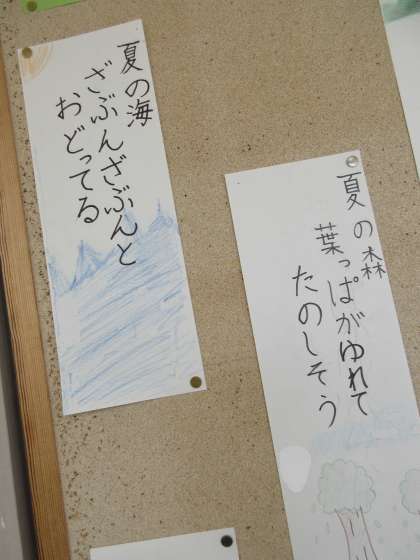 夏の海
ざぶんざぶんと
おどってる
夏の森
葉っぱがゆれて
たのしそう